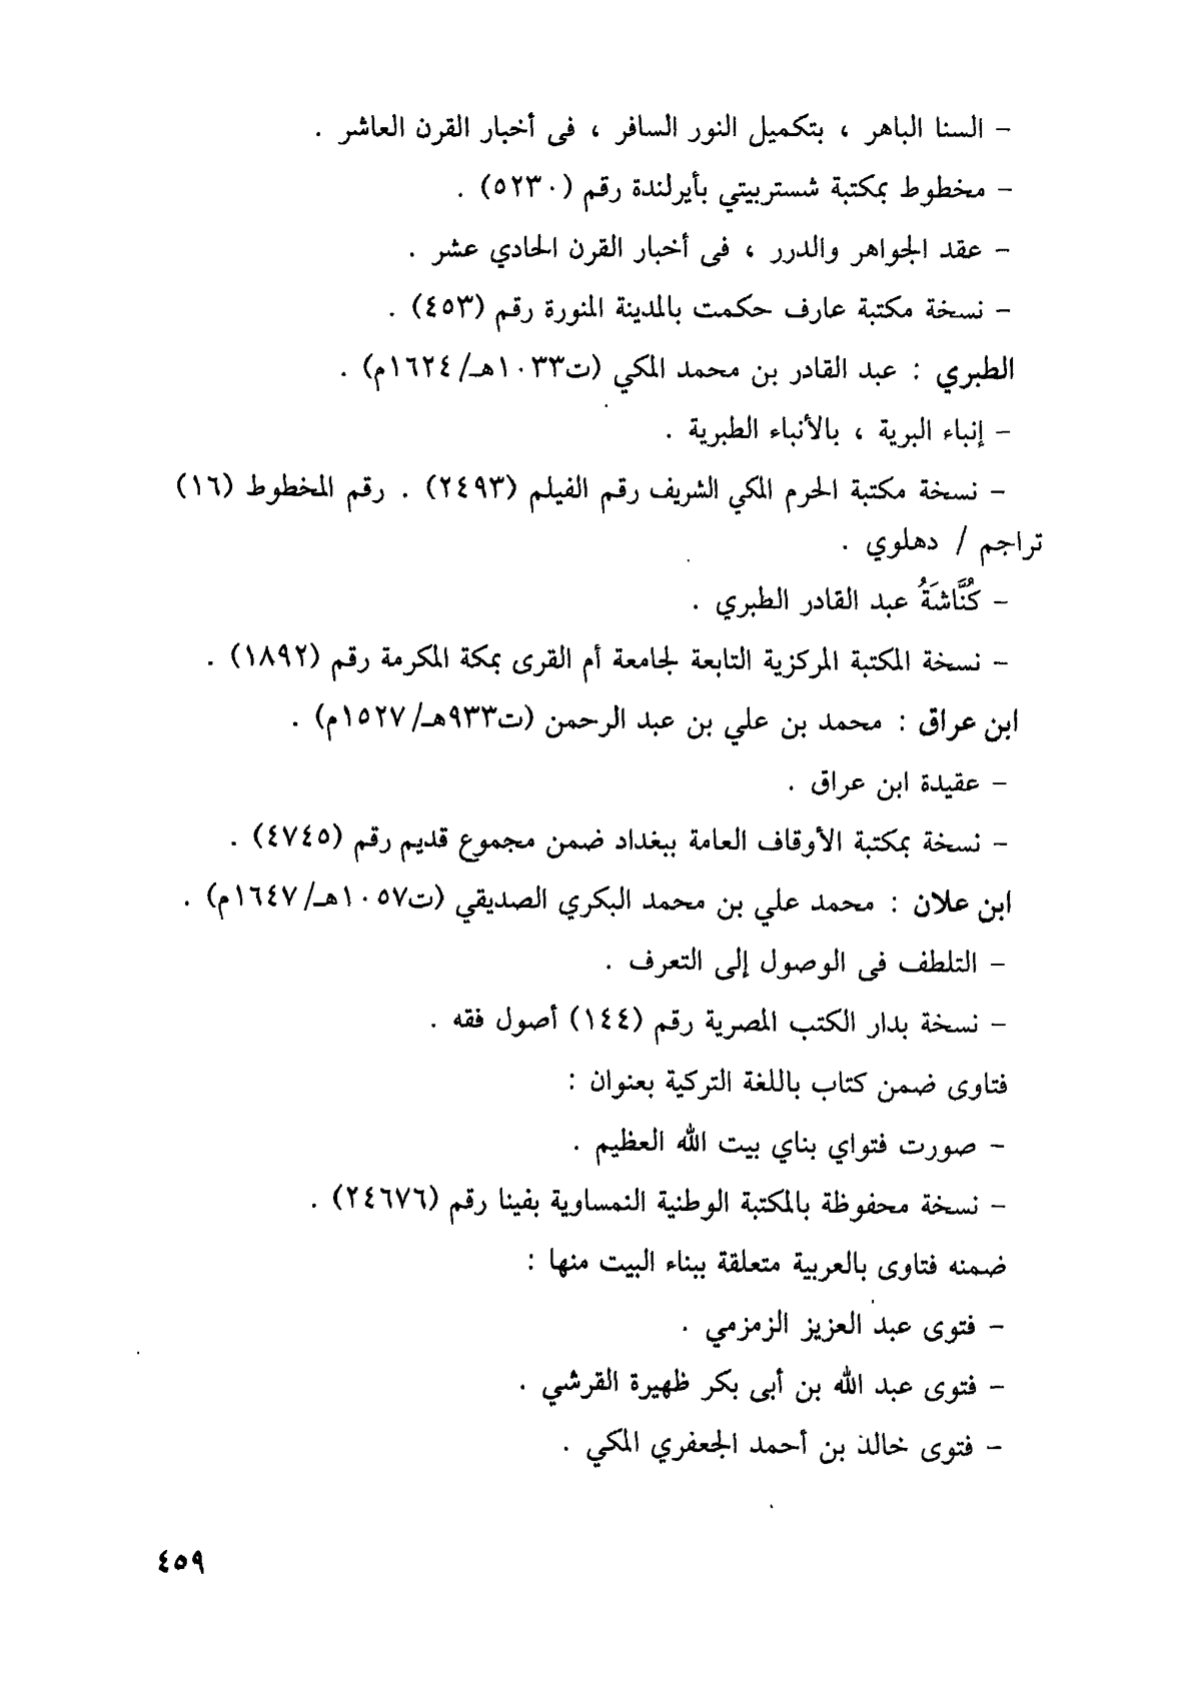 – السنا الباهر ، بتكميل النور السافر ، فى أخبار القرن العاشر .
– مخطوط بمكتبة شستربيتي بأيرلندة رقم (٥٢٣٠) .
– عقد الجواهر والدرر ، فى أخبار القرن الحادي عشر .
– نسخة مكتبة عارف حكمت بالمدينة المنورة رقم (٤٥٣) .
الطبري : عبد القادر بن محمد المكي (ت١٠٣٣هـ/١٦٢٤م) .
– إنباء البرية ، بالأنباء الطبرية .
– نسخة مكتبة الحرم المكي الشريف رقم الفيلم (٢٤٩٣) . رقم المخطوط (١٦)
تراجم / دهلوي .
– كُنَّاشَةُ عبد القادر الطبري .
– نسخة المكتبة المركزية التابعة لجامعة أم القرى بمكة المكرمة رقم (١٨٩٢) .
ابن عراق : محمد بن علي بن عبد الرحمن (ت٩٣٣هـ/١٥٢٧م) .
– عقيدة ابن عراق .
– نسخة بمكتبة الأوقاف العامة ببغداد ضمن مجموع قديم رقم (٤٧٤٥) .
ابن علان : محمد علي بن محمد البكري الصديقي (ت١٠٥٧هـ/١٦٤٧م) .
– التلطف فى الوصول إلى التعرف .
– نسخة بدار الكتب المصرية رقم (١٤٤) أصول فقه .
فتاوى ضمن كتاب باللغة التركية بعنوان :
– صورت فتواي بناي بيت الله العظيم .
– نسخة محفوظة بالمكتبة الوطنية النمساوية بفينا رقم (٢٤٦٧٦) .
ضمنه فتاوى بالعربية متعلقة ببناء البيت منها :
– فتوى عبد العزيز الزمزمي .
– فتوى عبد الله بن أبى بكر ظهيرة القرشي .
– فتوى خالد بن أحمد الجعفري المكي .
٤٥٩